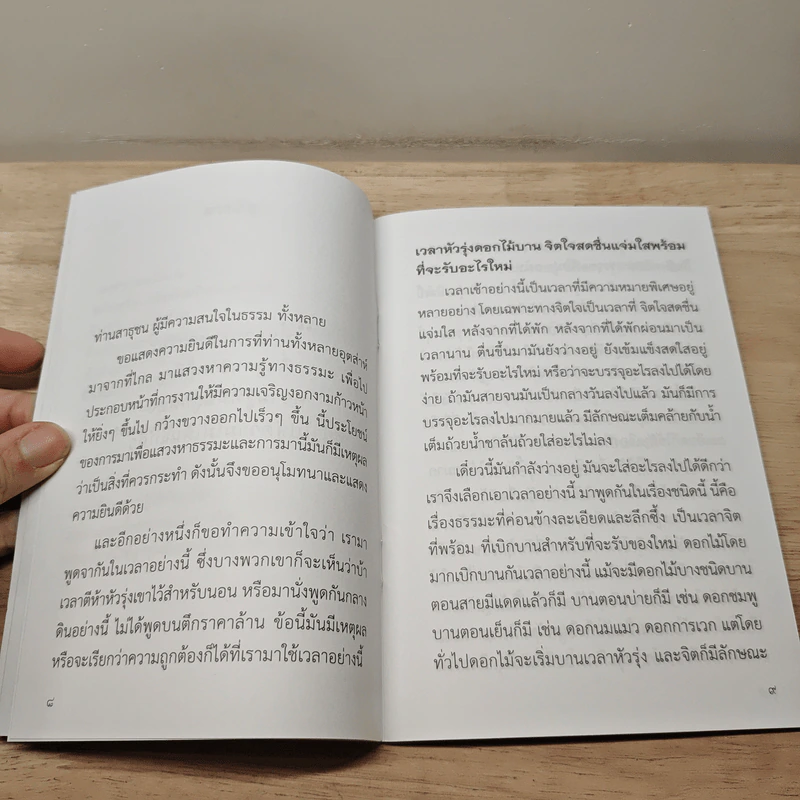 ท่านสาธุชน ผู้มีความสนใจในธรรม ทั้งหลาย
ขอแสดงความยินดีในการที่ท่านทั้งหลายอุตส่าห์
มาจากที่ไกล มาแสวงหาความรู้ทางธรรมะ เพื่อไป
ประกอบหน้าที่การงานให้มีความเจริญงอกงามก้าวหน้า
ให้ยิ่งๆ ขึ้นไป กว้างขวางออกไปเร็วๆ ขึ้น นี้ประโยชน์
ของการมาเพื่อแสวงหาธรรมะและการมานี้มันก็มีเหตุผล
ว่าเป็นสิ่งที่ควรกระทำ ดังนั้นจึงขออนุโมทนาและแสดง
ความยินดีด้วย
และอีกอย่างหนึ่งก็ขอทำความเข้าใจว่า เรามา
พูดจากันในเวลาอย่างนี้ ซึ่งบางพวกเขาก็จะเห็นว่าบ้า
เวลาตีห้าหัวรุ่งเขาไว้สำหรับนอน หรือมานั่งพูดกันกลาง
ดินอย่างนี้ ไม่ได้พูดบนตึกราคาล้าน ข้อนี้มันมีเหตุผล
หรือจะเรียกว่าความถูกต้องก็ได้ที่เรามาใช้เวลาอย่างนี้
๘
เวลาหัวรุ่งดอกไม้บาน จิตใจสดชื่นแจ่มใสพร้อม
ที่จะรับอะไรใหม่
เวลาเช้าอย่างนี้เป็นเวลาที่มีความหมายพิเศษอยู่
หลายอย่าง โดยเฉพาะทางจิตใจเป็นเวลาที่ จิตใจสดชื่น
แจ่มใส หลังจากที่ได้พัก หลังจากที่ได้พักผ่อนมาเป็น
เวลานาน ตื่นขึ้นมามันยังว่างอยู่ ยังเข้มแข็งสดใสอยู่
พร้อมที่จะรับอะไรใหม่ หรือว่าจะบรรจุอะไรลงไปได้โดย
ง่าย ถ้ามันสายจนมันเป็นกลางวันลงไปแล้ว มันก็มีการ
บรรจุอะไรลงไปมากมายแล้ว มีลักษณะเต็มคล้ายกับน้ำ
เต็มถ้วยน้ำชาล้นถ้วยใส่อะไรไม่ลง
เดี๋ยวนี้มันกำลังว่างอยู่ มันจะใส่อะไรลงไปได้ดีกว่า
เราจึงเลือกเอาเวลาอย่างนี้ มาพูดกันในเรื่องชนิดนี้ นี้คือ
เรื่องธรรมะที่ค่อนข้างละเอียดและลึกซึ้ง เป็นเวลาจิต
ที่พร้อม ที่เบิกบานสำหรับที่จะรับของใหม่ ดอกไม้โดย
มากเบิกบานกันเวลาอย่างนี้ แม้จะมีดอกไม้บางชนิดบาน
ตอนสายมีแดดแล้วก็มี บานตอนบ่ายก็มี เช่น ดอกชมพู
บานตอนเย็นก็มี เช่น ดอกนมแมว ดอกการเวก แต่โดย
ทั่วไปดอกไม้จะเริ่มบานเวลาหัวรุ่ง และจิตก็มีลักษณะ
๙